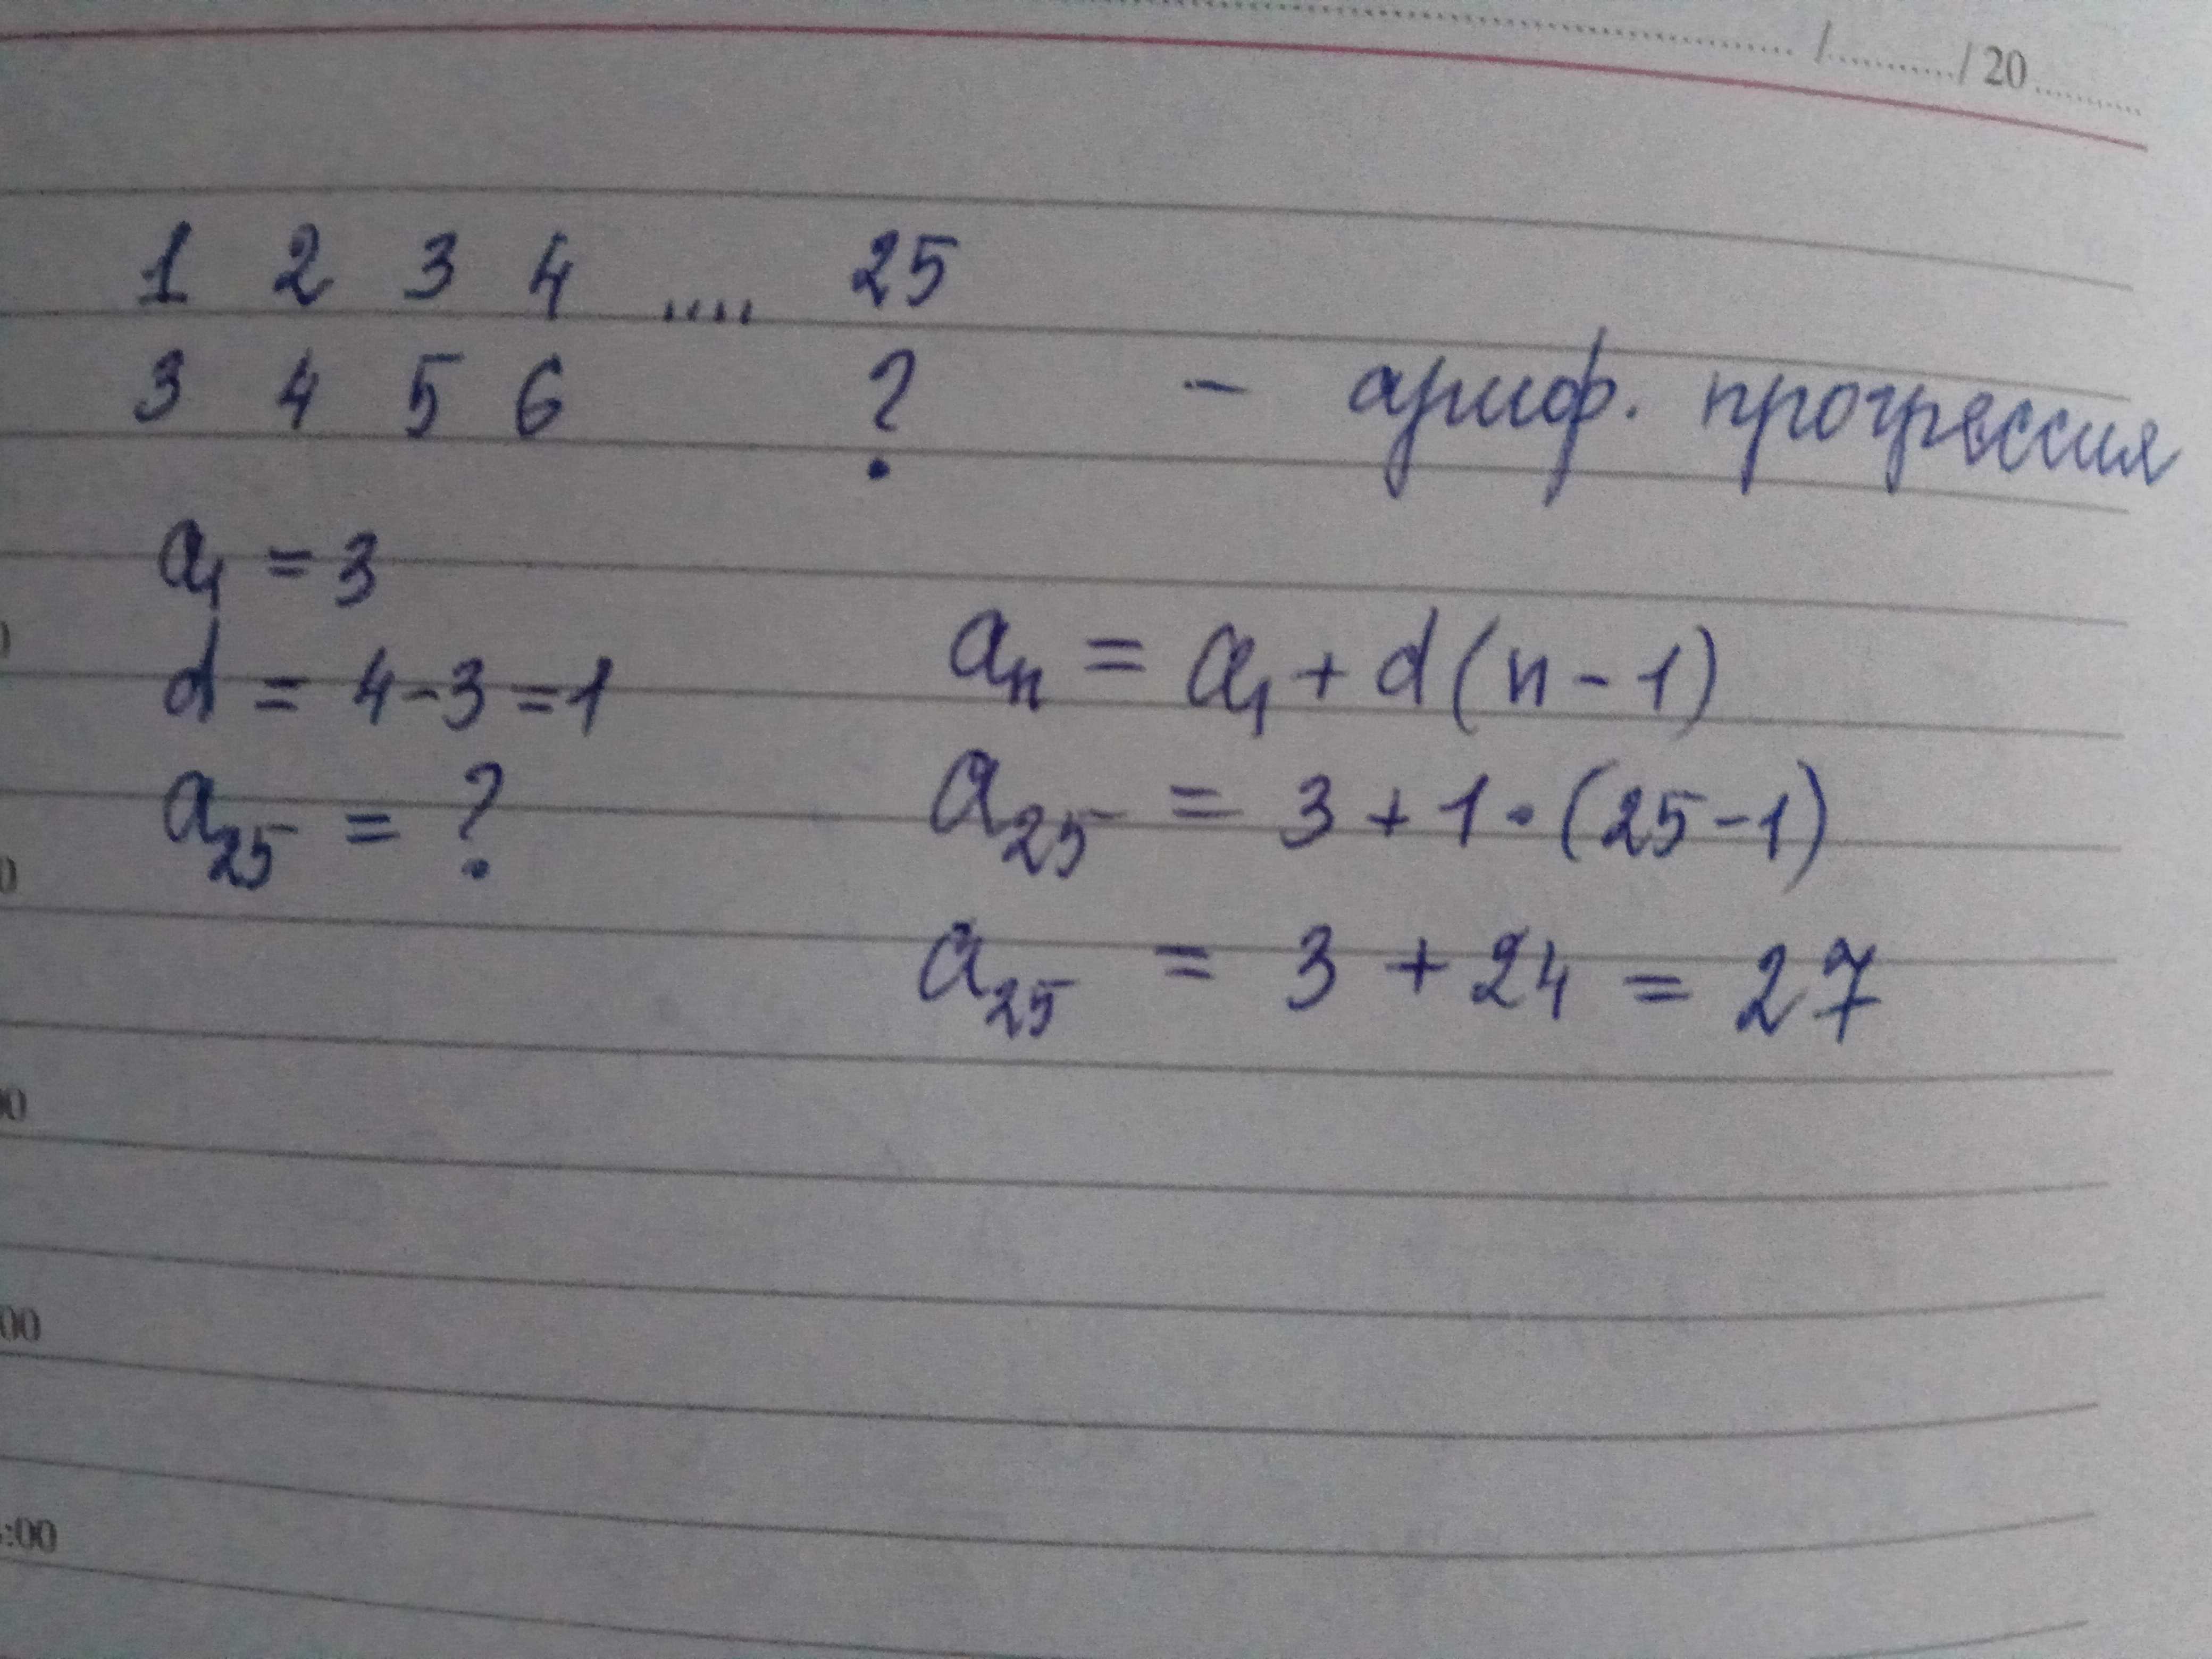 / / 20
1 2 3 4 .... 25
3 4 5 6 ? - ариф. прогрессия
a₁ = 3
d = 4-3=1
a₂₅ = ?
aₙ = a₁ + d(n-1)
a₂₅ = 3 + 1·(25-1)
a₂₅ = 3 + 24 = 27
00
:00